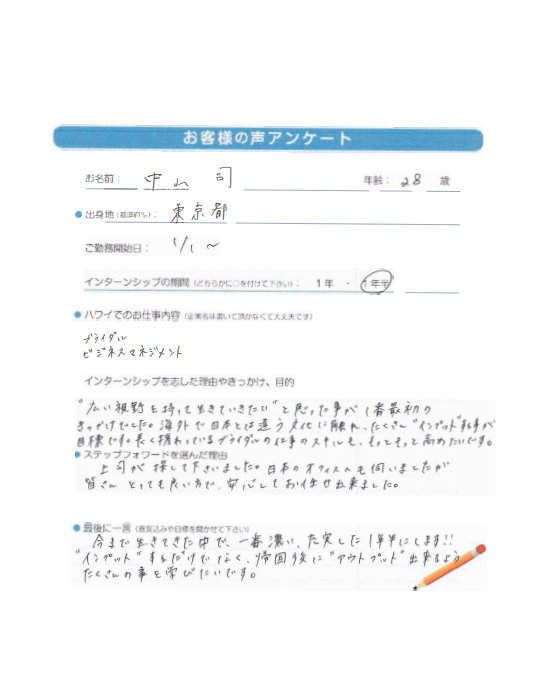 お客様の声アンケート
お名前： 中山 司 年齢： 28 歳
出身地（都道府県）： 東京都
ご勤務開始日： 1/1 〜
インターンシップの期間（どちらかに○を付けて下さい）： 1年 ・ 1年半
ハワイでのお仕事内容（企業名は書いて頂かなくて大丈夫です）
ブライダル
ビジネスマネジメント
インターンシップを志した理由やきっかけ、目的
"広い視野を持って生きていきたい"と思った事が1番最初の
きっかけでした。海外で日本とは違う文化に触れ、たくさん"インプット"する事が
目標です。長く携わっているブライダルの仕事のスキルも、もっともっと高めたいです。
ステップフォワードを選んだ理由
上司が探して下さいました。日本のオフィスへも伺いましたが
皆さんとっても良い方で、安心してお任せ出来ました。
最後に一言（意気込みや目標を聞かせて下さい）
今まで生きてきた中で、一番濃い、充実した1年半にします!!
"インプット"するだけでなく、帰国後に"アウトプット"出来るよう
たくさんの事を学びたいです。